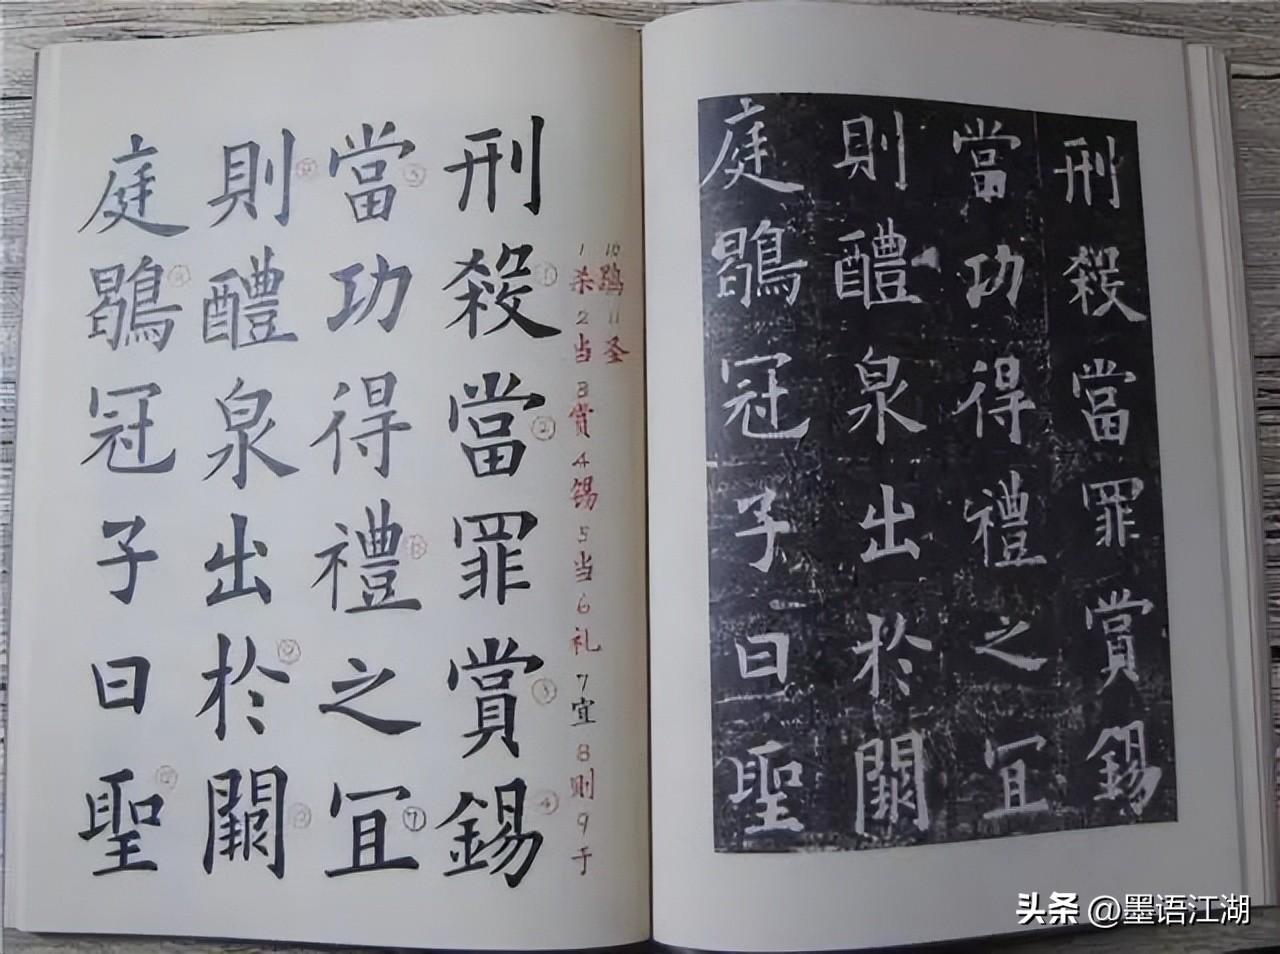 刑殺當罪賞錫
當功得禮之宜
則醴泉出於闕
庭鶡冠子曰聖
1杀2当3赏4锡5当6礼7宜8则9于
10鹖11圣
刑殺當罪賞錫
當功得禮之宜
則醴泉出於闕
庭鶡冠子曰聖
头条 @墨语江湖